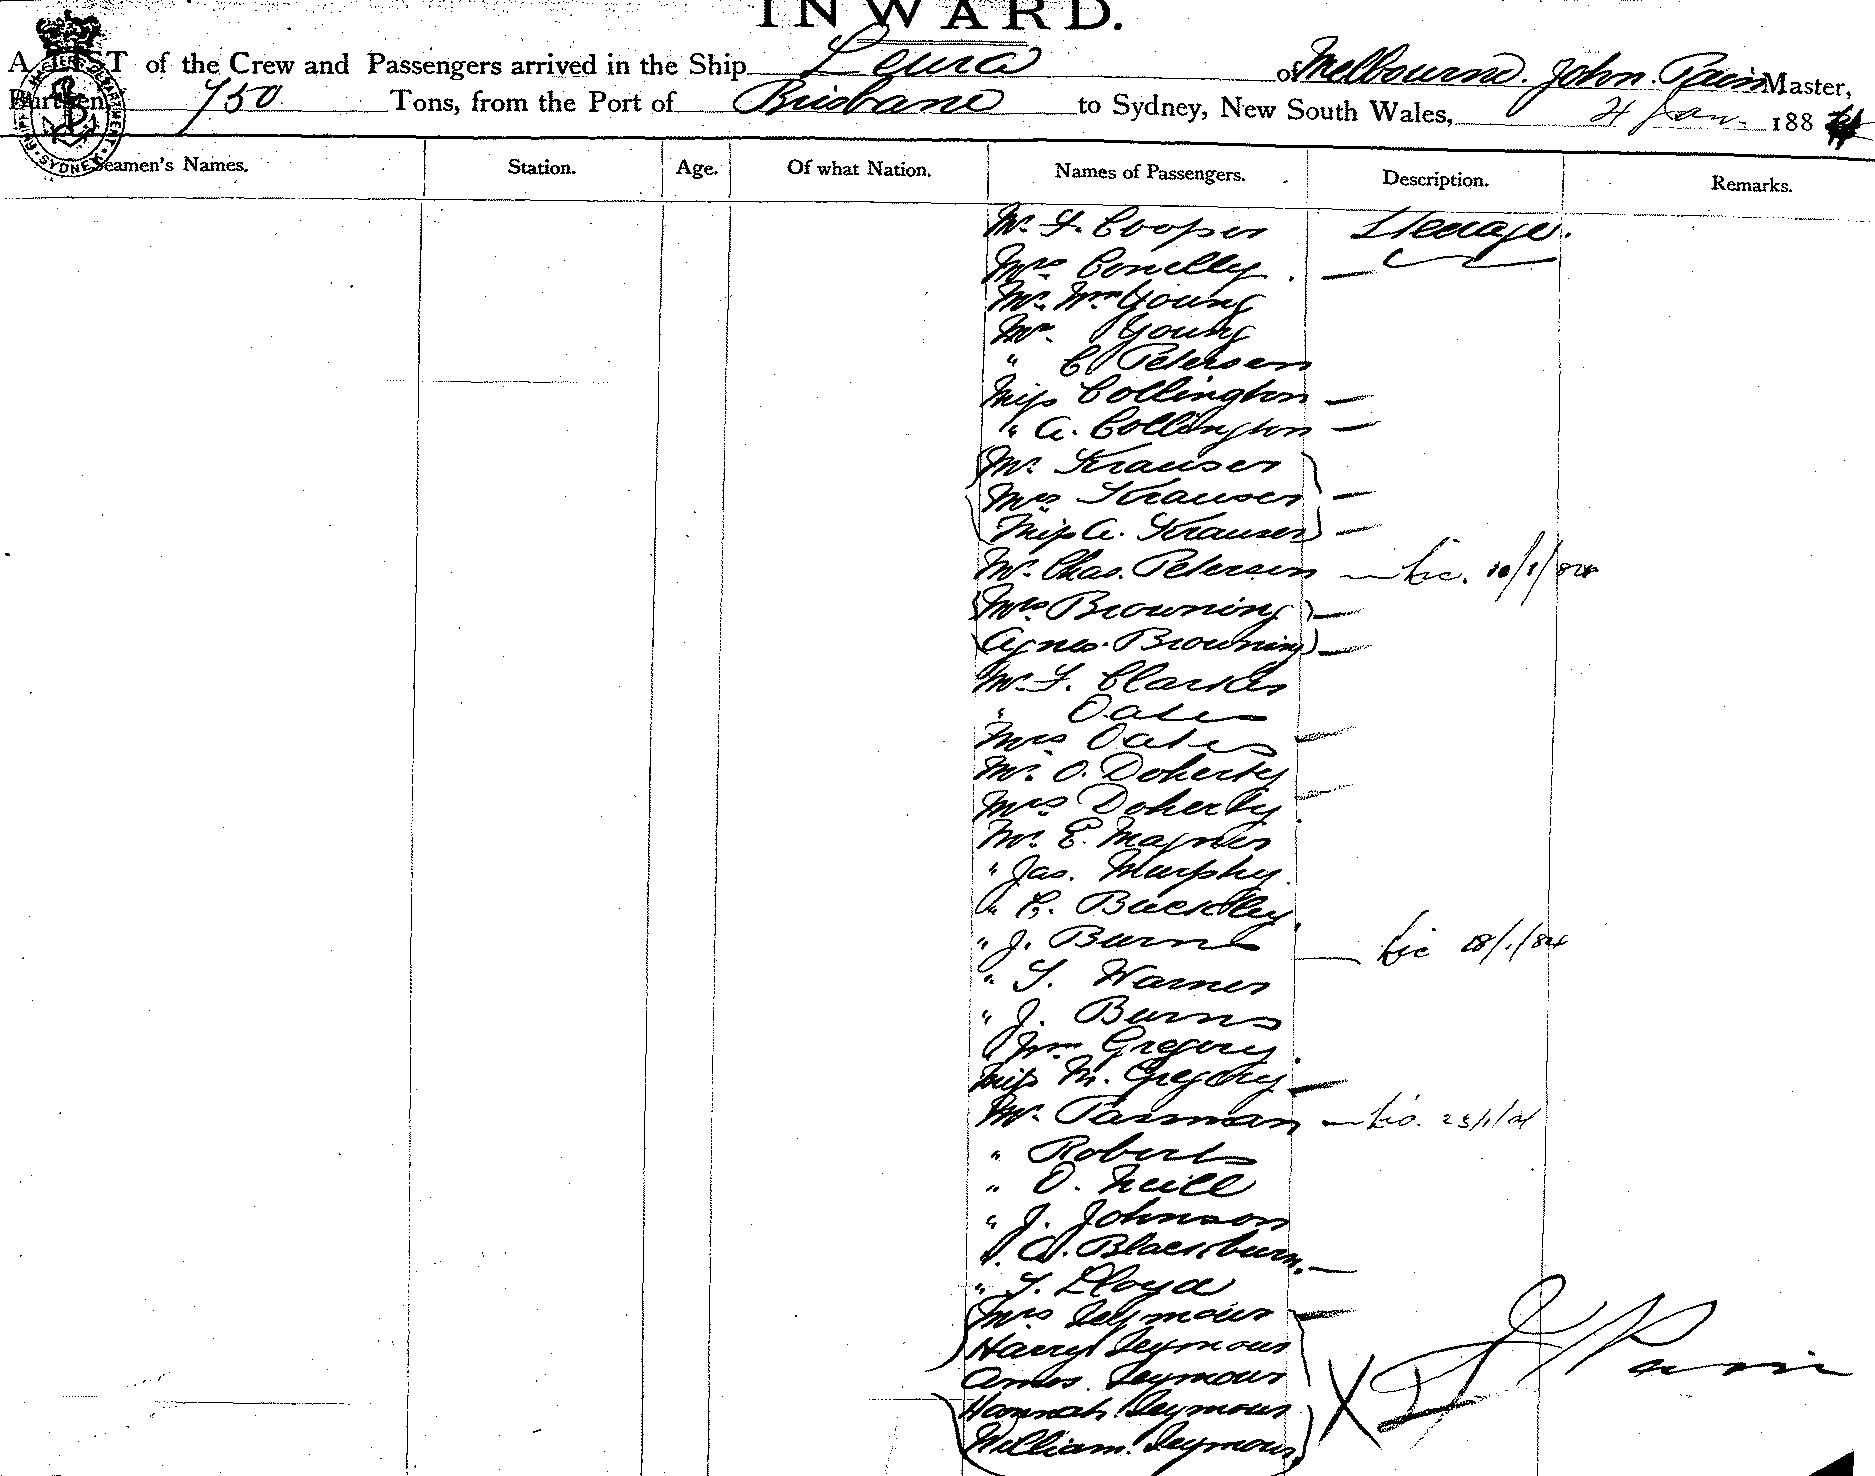 INWARD.
A LIST of the Crew and Passengers arrived in the Ship Leura of Melbourne. John Pain Master,
Burthen 750 Tons, from the Port of Brisbane to Sydney, New South Wales, 4 Jan. 1884
Seamen's Names. Station. Age. Of what Nation. Names of Passengers. Description. Remarks.
Mr. F. Cooper Steerage.
Mrs Conelly.
Mr. Wm Young
Mr. Young
" C Petersen
Miss Collington
" A. Collington
Mr. Krauser
Mrs Krauser
Miss A. Krauser
Mr. Chas. Petersen Lic. 10/1/84
Mrs Browning
Agnes. Browning
Mr. F. Clarke
" Oates
Mrs Oates
Mr. O. Doherty
Mrs Doherty
Mr. E. Magner
" Jas. Murphy.
" C. Buckley
" J. Burns Lic 18/1/84
" S. Warner
" J. Burns
" Wm Gregory.
Miss M. Gregory
Mr. Passman Lic. 23/1/84
" Roberts
" O. Neill
" J. Johnson
" A. Blackburn.
" T. Lloyd
Mrs Seymour
Harry Seymour
Seymour
Hannah Seymour
William. Seymour.
X J Pain